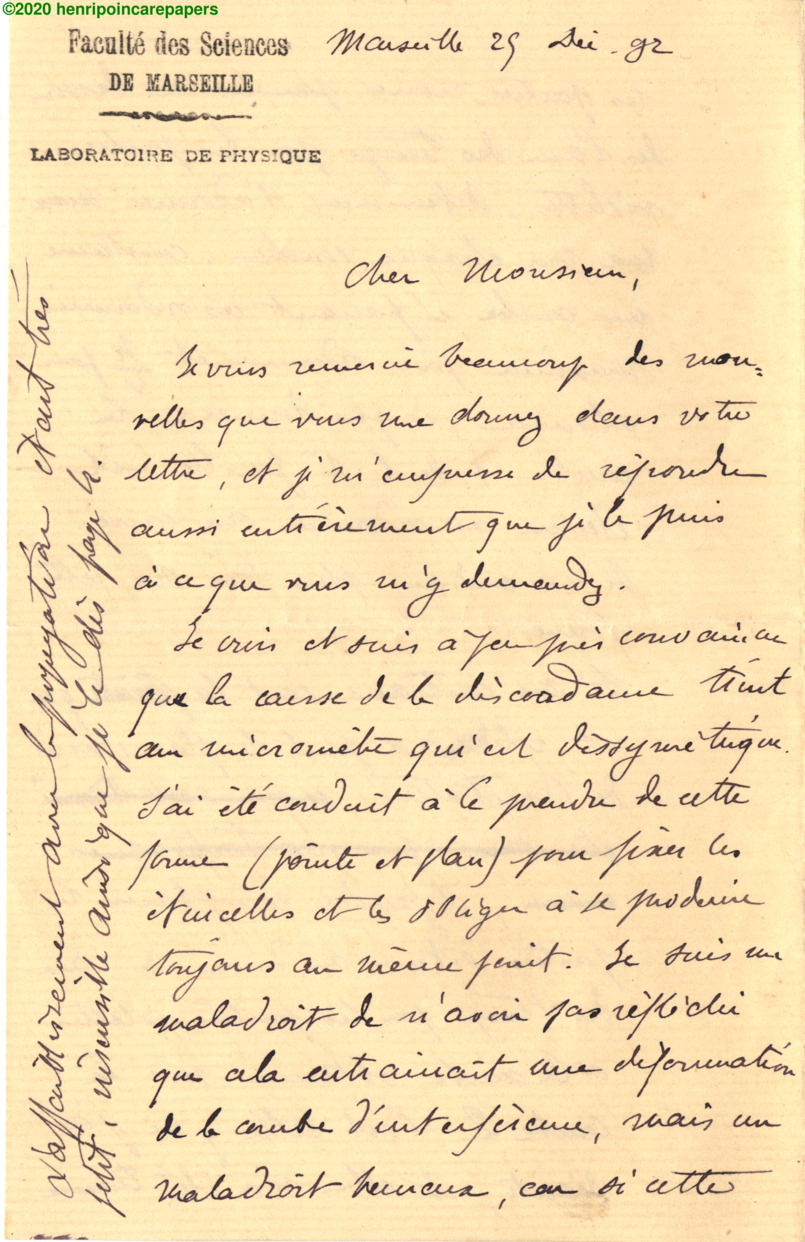 ©2020 henripoincarepapers
Faculté des Sciences
DE MARSEILLE
LABORATOIRE DE PHYSIQUE
Marseille 25 Déc. 92
Cher Monsieur,
Je vous remercie beaucoup des nou-
velles que vous me donnez dans votre
lettre, et je m'empresse de répondre
aussi entièrement que je le puis
à ce que vous m'y demandez.
Je crois et suis à peu près convaincu
que la cause de la discordance tient
au micromètre qui est dissymétrique.
J'ai été conduit à le prendre de cette
forme (pointe et plan) pour fixer les
étincelles et les obliger à se produire
toujours au même point. Je suis un
maladroit de n'avoir pas réfléchi
que cela entrainait une déformation
de la courbe d'interférence, mais un
maladroit heureux, car si cette
l'affaiblissement avec la propagation étant très
petit, insensible ainsi que je le dis page 4.